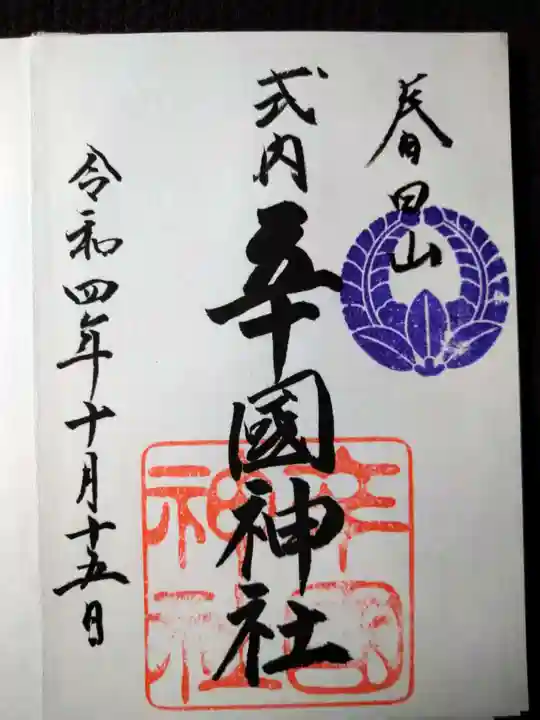 春日山
式内 辛國神社
令和四年十月十五日
辛國神社